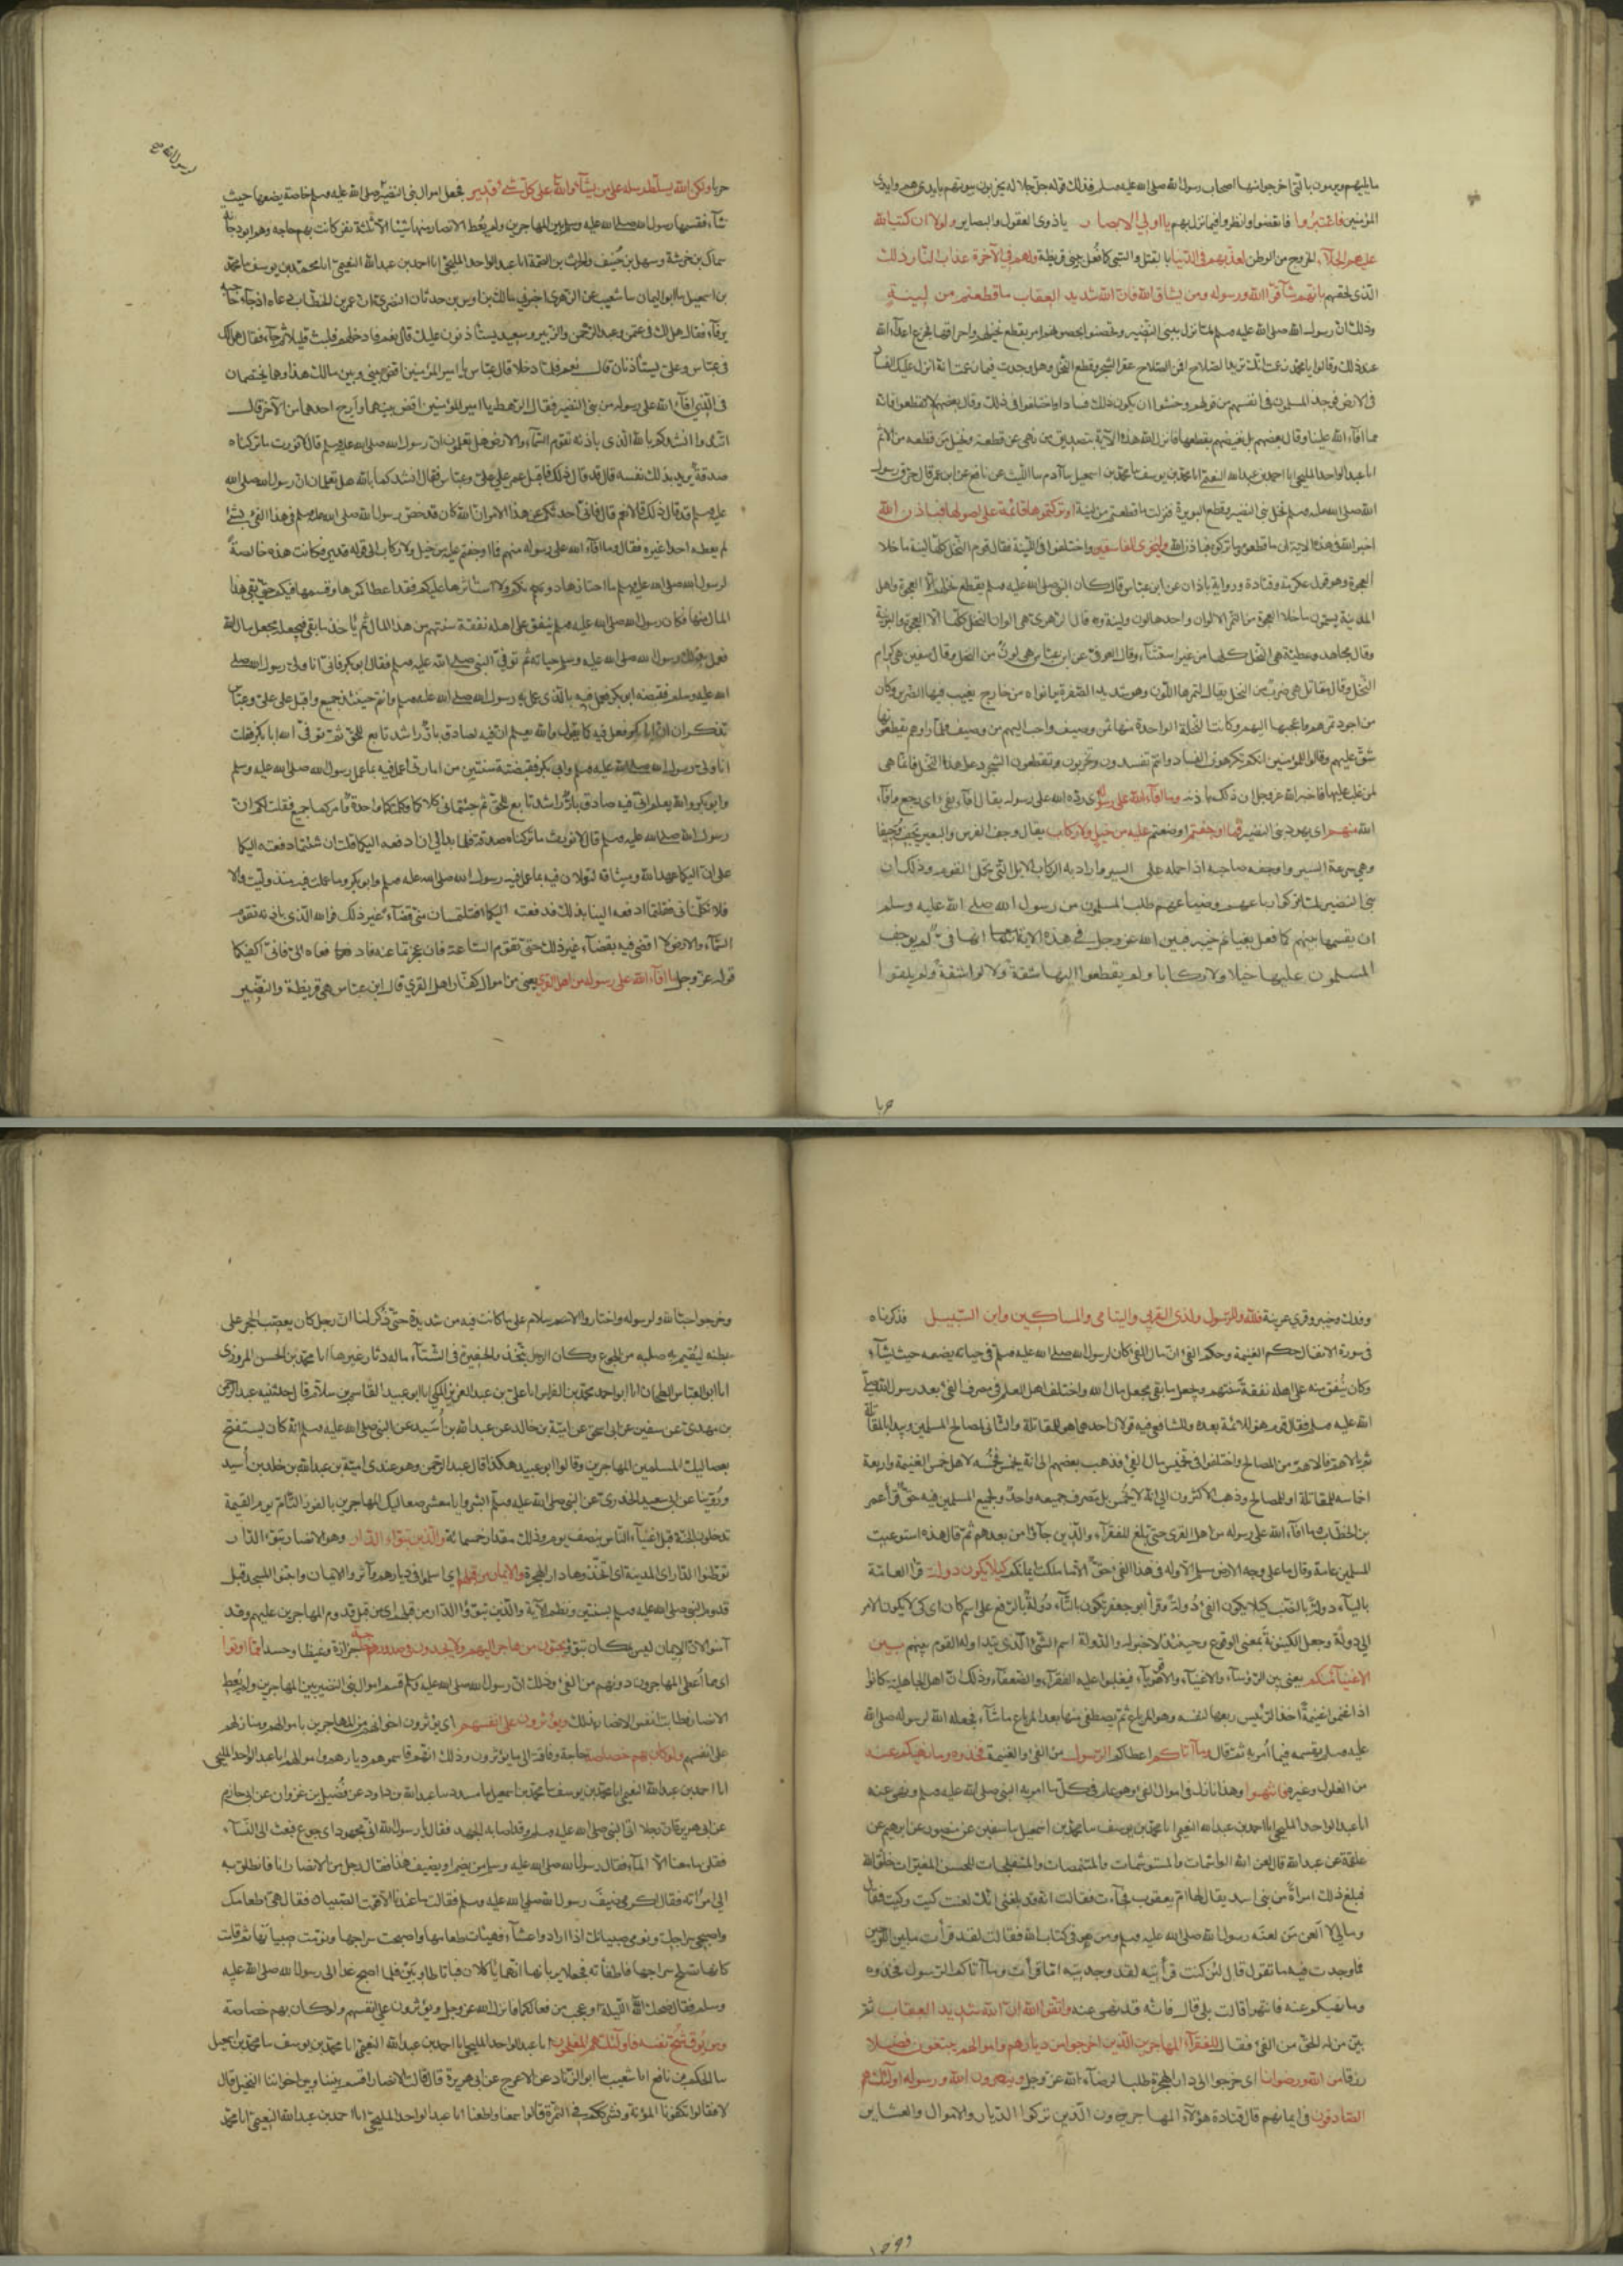 ما يليهم ويرمون بالتي اخرجوا منها اصحاب رسول الله صلى الله عليه وسلم فذلك قوله جل جلاله يخربون بيوتهم بايديهم وايدي
المؤمنين فاعتبروا فاتعضوا وانظروا فيما نزل بهم يا اولي الابصار ياذوي العقول والبصاير ولولا ان كتب الله
عليهم الجلاء الخروج من الوطن لعذبهم في الدنيا بالقتل والسبي كما فعل ببني قريظة ولهم في الآخرة عذاب النار ذلك
الذي لحقهم بانهم شاقوا الله ورسوله ومن يشاق الله فان الله شديد العقاب ما قطعتم من لينة
وذلك ان رسول الله صلى الله عليه وسلم لما نزل ببني النضير وتحصنوا بحصونهم امر بقطع نخيلهم واحراقها فجزع اعداء الله
عند ذلك وقالوا يا محمد زعمت انك تريد الصلاح افمن الصلاح عقر الشجر وقطع النخل وهل وجدت فيما زعمت انه انزل عليك الفساد
في الارض فوجد المسلمون في انفسهم من قولهم وخشوا ان يكون ذلك فسادا واختلفوا في ذلك وقال بعضهم لا تقطعوا فانه
مما افاء الله علينا وقال بعضهم بل نغيضهم بقطعها فانزل الله هذه الآية بتصديق من نهى عن قطعه وتحليل من قطعه من الاثم
انا عبد الواحد المليحي انا احمد بن عبد الله النعيمي انا محمد بن يوسف نا محمد بن اسمعيل نا آدم نا الليث عن نافع عن ابن عمر قال حرق رسول
الله صلى الله عليه وسلم نخل بني النضير وقطع البويرة فنزلت ما قطعتم من لينة او تركتموها قائمة على اصولها فباذن الله
اخبر الله في هذه الاية ان ما قطعوه وما تركوه فباذن الله وليخزي الفاسقين واختلفوا في اللينة فقال قوم النخل كلها لينة ما خلا
العجوة وهو قول عكرمة وقتادة ورواية باذان عن ابن عباس قال كان النبي صلى الله عليه وسلم يقطع نخلهم الا العجوة واهل
المدينة يسمون ما خلا العجوة من التمر الالوان واحدها لون ولينة وقال الزهري هي الوان النخل كلها الا العجوة والبرنية
وقال مجاهد وعطية هي النخل كلها من غير استثناء وقال العوفي عن ابن عباس هي لون من النخل وقال سفين هي كرام
النخل وقال مقاتل هي ضرب من النخل يقال لتمرها اللون وهو شديد الصفرة يرى نواه من خارج يغيب فيها الضرس وكان
من اجود تمرهم واعجبها اليهم وكانت النخلة الواحدة منها ثمن وصيف واحب اليهم من وصيف فلما راوهم يقطعونها
شق عليهم وقالوا للمؤمنين انكم تكرهون الفساد وانتم تفسدون وتخربون وتقطعون الشجر دعوا هذا النخل فانما هي
لمن غلب عليها فاخبر الله عز وجل ان ذلك باذنه وما افاء الله على رسوله اي رده الله على رسوله يقال افاء يفيء اي رجع وافاء
الله منهم اي يهود بني النضير فما اوجفتم اوضعتم عليه من خيل ولا ركاب يقال وجف الفرس والبعير يجف وجيفا
وهي سرعة السير واوجفه صاحبه اذا حمله على السير واراد به الركاب الابل التي تحمل القوم وذلك ان
بني النضير لما تركوا رباعهم وضياعهم طلب المسلمون من رسول الله صلى الله عليه وسلم
ان يقسمها بينهم كما فعل بغنائم خيبر فبين الله عز وجل في هذه الاية انها فيء لم يوجف
المسلمون عليها خيلا ولا ركابا ولم يقطعوا اليها شقة ولا نالوا مشقة ولم يلقوا
حربا
حربا ولكن الله يسلط رسله على من يشاء والله على كل شيء قدير فجعل اموال بني النضير صلى الله عليه وسلم خاصة يضعها حيث
لرسول الله صح
شاء فقسمها رسول الله صلى الله عليه وسلم بين المهاجرين ولم يعط الانصار منها شيئا الا ثلثة نفر كانت بهم حاجه وهم ابو دجانة
سماك بن خرشة وسهل بن حنيف والحرث بن الصمة انا عبد الواحد المليحي انا احمد بن عبد الله النعيمي انا محمد بن يوسف نا محمد
بن اسمعيل نا ابو اليمان نا شعيب عن الزهري اخبرني مالك بن اوس بن حدثان النضري ان عمر بن الخطاب دعاه اذ جاءه حاجبه
يرفاء فقال هل لك في عثمن وعبد الرحمن والزبير وسعيد يستأذنون عليك قال نعم فادخلهم فلبث قليلا ثم جاء فقال هل لك
في عباس وعلي يستأذنان قال نعم فلما دخلا قال عباس يا امير المؤمنين اقض بيني وبين هذا وهما يختصمان
في الذي افاء الله على رسوله من بني النضير فقال الرهط يا امير المؤمنين اقض بينهما وارح احدهما من الآخر قال
اتئدوا انشدكم بالله الذي باذنه تقوم السماء والارض هل تعلمون ان رسول الله صلى الله عليه وسلم قال لا نورث ما تركناه
صدقة يريد بذلك نفسه قالوا قد قال ذلك فاقبل عمر على علي وعباس فقال انشدكما بالله هل تعلمان ان رسول الله صلى الله
عليه وسلم قد قال ذلك قالا نعم قال فاني احدثكم عن هذا الامر ان الله كان قد خص رسول الله صلى الله عليه وسلم في هذا الفيء بشيء
لم يعطه احدا غيره فقال وما افاء الله على رسوله منهم فما اوجفتم عليه من خيل ولا ركاب الى قوله قدير فكانت هذه خالصة
لرسول الله صلى الله عليه وسلم ما احتازها دونكم ولا استأثرها عليكم فقد اعطاكموها وقسمها فيكم حتى بقي هذا
المال منها فكان رسول الله صلى الله عليه وسلم ينفق على اهله نفقة سنتهم من هذا المال ثم يأخذ ما بقي فيجعله مجعل مال الله
فعمل بذلك رسول الله صلى الله عليه وسلم حياته ثم توفي النبي صلى الله عليه وسلم فقال ابو بكر فاني انا ولي رسول الله صلى
الله عليه وسلم فقبضه ابو بكر فعمل فيه بالذي عمل به رسول الله صلى الله عليه وسلم وانتم حينئذ جميع واقبل على علي وعباس
تذكران ان ابا بكر فعل فيه كما تقولان والله يعلم انه فيه لصادق بار راشد تابع للحق ثم توفي الله ابا بكر فقلت
انا ولي رسول الله صلى الله عليه وسلم وابي بكر فقبضته سنتين من امارتي اعمل فيه بما عمل رسول الله صلى الله عليه وسلم
وابو بكر والله يعلم اني فيه صادق بار راشد تابع للحق ثم جئتماني كلاكما وكلمتكما واحدة وامركما جميع فقلت لكما ان
رسول الله صلى الله عليه وسلم قال لا نورث ما تركناه صدقة فلما بدا لي ان ادفعه اليكما قلت ان شئتما دفعته اليكما
على ان عليكما عهد الله وميثاقه لتعملان فيه بما عمل فيه رسول الله صلى الله عليه وسلم وابو بكر وما عملت فيه منذ وليت والا
فلا تكلماني فقلتما ادفعه الينا بذلك فدفعته اليكما افتلتمسان مني قضاء غير ذلك فوالله الذي باذنه تقوم
السماء والارض لا اقضي فيه بقضاء غير ذلك حتى تقوم الساعة فان عجزتما عنه فادفعاه الي فاني اكفيكما
قوله عز وجل ما افاء الله على رسوله من اهل القرى يعني من اموال كفار اهل القرى قال ابن عباس هي قريظة والنضير
وفدك وخيبر وقرى عرينة فلله وللرسول ولذي القربى واليتامى والمساكين وابن السبيل قد ذكرناه
في سورة الانفال حكم الغنيمة وحكم الفيء ان مال الفيء كان لرسول الله صلى الله عليه وسلم في حياته يضعه حيث يشاء
وكان ينفق منه على اهله نفقة سنتهم ويجعل ما بقي مجعل مال الله واختلف اهل العلم في مصرف الفيء بعد رسول الله صلى
الله عليه وسلم فقال قوم هو للائمة بعده وللشافعي فيه قولان احدهما هو للمقاتلة والثاني لمصالح المسلمين ويبدا بالمقاتلة
ثم الاهم فالاهم من المصالح واختلفوا في تخميس مال الفيء فذهب بعضهم الى انه يخمس فخمسه لاهل خمس الغنيمة واربعة
اخماسه للمقاتلة او للمصالح وذهب الاكثرون الى انه لا يخمس بل مصرف جميعه واحد ولجميع المسلمين فيه حق قرأ عمر
بن الخطاب ما افاء الله على رسوله من اهل القرى حتى بلغ للفقراء والذين جاؤا من بعدهم ثم قال هذه استوعبت
المسلمين عامة وقال ما على وجه الارض مسلم الا وله في هذا الفيء حق الا ما ملكت ايمانكم كيلا يكون دولة قرأ العامة
بالياء دولة بالنصب كيلا يكون الفيء دولة وقرأ ابو جعفر تكون بالتاء دولة بالرفع على اسم كان اي كي لا يكون الامر
الى دولة وجعل الكينونة بمعنى الوقوع وحينئذ لا خبر له والدولة اسم الشيء الذي يتداوله القوم بينهم بين
الاغنياء منكم يعني بين الرؤساء والاغنياء والاقوياء فيغلبوا عليه الفقراء والضعفاء وذلك ان اهل الجاهلية كانوا
اذا غنموا غنيمة اخذ الرئيس ربعها لنفسه وهو المرباع ثم يصطفي منها بعد المرباع ما شاء فجعله الله لرسوله صلى الله
عليه وسلم يقسمه فيما امر به ثم قال وما آتاكم اعطاكم الرسول من الفيء والغنيمة فخذوه وما نهيكم عنه
من الغلول وغيره فانتهوا وهذا نازل في اموال الفيء وهو عام في كل ما امر به النبي صلى الله عليه وسلم ونهى عنه
انا عبد الواحد المليحي انا احمد بن عبد الله النعيمي انا محمد بن يوسف نا محمد بن اسمعيل نا سفين عن منصور عن ابرهيم عن
علقمة عن عبد الله قال لعن الله الواشمات والمستوشمات والمتنمصات والمتفلجات للحسن المغيرات خلق الله
فبلغ ذلك امراة من بني اسد يقال لها ام يعقوب فجاءت فقالت انه قد بلغني انك لعنت كيت وكيت فقال
وما لي لا العن من لعنه رسول الله صلى الله عليه وسلم ومن هو في كتاب الله فقالت لقد قرأت ما بين اللوحين
فما وجدت فيه ما تقول قال لئن كنت قرأتيه لقد وجدتيه اما قرأت وما آتاكم الرسول فخذوه
وما نهيكم عنه فانتهوا قالت بلى قال فانه قد نهى عنه واتقوا الله ان الله شديد العقاب ثم
بين من له الحق من الفيء فقال للفقراء المهاجرين الذين اخرجوا من ديارهم واموالهم يبتغون فضلا
رزقا من الله ورضوانا اي خرجوا الى دار الهجرة طلبا لرضاء الله عز وجل وينصرون الله ورسوله اولئك هم
الصادقون في ايمانهم قال قتادة هؤلاء المهاجرون الذين تركوا الديار والاموال والعشاير
وخرجوا حبا لله ولرسوله واختاروا الاسلام على ما كانت فيه من شديدة حتى ذكر لنا ان رجل كان يعصب الحجر على
بطنه ليقيم به صلبه من الجوع وكان الرجل يتخذ والحفيرة في الشتاء ماله دثار غيرها انا محمد بن الحسن المروزي
انا ابو العباس الطحان انا ابو احمد محمد بن القراس انا علي بن عبد العزيز المكي انا ابو عبيد القاسم بن سلام قال حدثنيه عبد الرحمن
بن مهدي عن سفين عن ابي اسحق عن امية بن خالد عن عبد الله بن أسيد عن النبي صلى الله عليه وسلم انه كان يستفتح
بصعاليك المسلمين المهاجرين وقالوا ابو عبيد هكذا قال عبد الرحمن وهو عندي امية بن عبد الله بن خالد بن أسيد
وروينا عن ابي سعيد الخدري عن النبي صلى الله عليه وسلم ابشروا يا معشر صعاليك المهاجرين بالفوز التام يوم القيمة
تدخلون الجنة قبل اغنياء الناس بنصف يوم وذلك مقدار خمسمائة والذين تبوءا الدار وهم الانصار تبوؤا الدار
توطنوا الدار اي المدينة اي اتخذوها دار الهجرة والايمان من قبلهم اي اسلموا في ديارهم وآثروا الايمان وابتنوا المسجد قبل
قدوم النبي صلى الله عليه وسلم بسنتين ونظم الآية والذين تبوؤا الدار من قبلهم اي من قبل قدوم المهاجرين عليهم وقد
آمنوا لان الايمان ليس بمكان تبوؤ يحبون من هاجر اليهم ولا يجدون في صدورهم حاجة حزازة وغيظا وحسدا مما اوتوا
اي مما اعطي المهاجرون دونهم من الفيء وذلك ان رسول الله صلى الله عليه وسلم قسم اموال بني النضير بين المهاجرين ولم يعط
الانصار فطابت انفس الانصار بذلك ويؤثرون على انفسهم اي يؤثرون اخوانهم من المهاجرين باموالهم ومنازلهم
على انفسهم ولو كان بهم خصاصة حاجة وفاقة الى ما يؤثرون وذلك انهم قاسموهم ديارهم واموالهم انا عبد الواحد المليحي
انا احمد بن عبد الله النعيمي انا محمد بن يوسف نا محمد بن اسمعيل نا مسدد نا عبد الله بن داود عن فضيل بن غزوان عن ابي حازم
عن ابي هريرة ان رجلا اتى النبي صلى الله عليه وسلم وقد اصابه الجهد فقال يا رسول الله اني مجهود اي جوع فبعث الى النساء
فقلن ما معنا الا الماء فقال رسول الله صلى الله عليه وسلم من يضم او يضيف هذا فقال رجل من الانصار انا فانطلق به
الى امرأته فقال اكرمي ضيف رسول الله صلى الله عليه وسلم فقالت ما عندنا الا قوت الصبيان فقال هيئ طعامك
واصبحي سراجك ونومي صبيانك اذا ارادوا عشاء فهيئت طعامها واصبحت سراجها ونومت صبيانها ثم قامت
كانها تصلح سراجها فاطفأته فجعلا يريانه انهما ياكلان فباتا طاويين فلما اصبح غدا الى رسول الله صلى الله عليه
وسلم فقال ضحك الله الليلة او عجب من فعالكما فانزل الله عز وجل ويؤثرون على انفسهم ولو كان بهم خصاصة
ومن يوق شح نفسه فاولئك هم المفلحون انا عبد الواحد المليحي انا احمد بن عبد الله النعيمي انا محمد بن يوسف نا محمد بن اسمعيل
نا الحكم بن نافع انا شعيب نا ابو الزناد عن الاعرج عن ابي هريرة قال قالت الانصار اقسم بيننا وبين اخواننا النخيل قال
لا فقالوا تكفونا المؤنة ونشرككم في الثمرة قالوا سمعنا واطعنا انا عبد الواحد المليحي انا احمد بن عبد الله النعيمي انا محمد